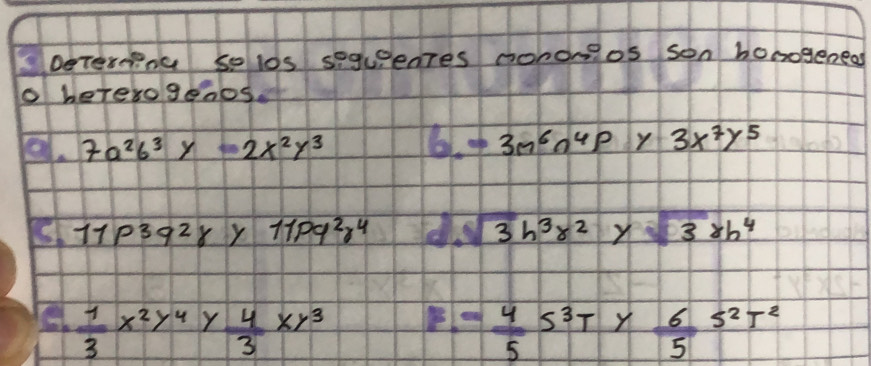 3 Determina si los siguientes monomios son homogeneos
o heterogenos.
a. 7a²b³ y -2x²y³ b. -3m⁶n⁴p y 3x⁷y⁵
c. 11p3q²r y 11pq²r⁴ d. √3 h³r² y √3 rh⁴
e. 1/3 x²y⁴ y 4/3 xy³ F. -4/5 s³T y 6/5 s²T²